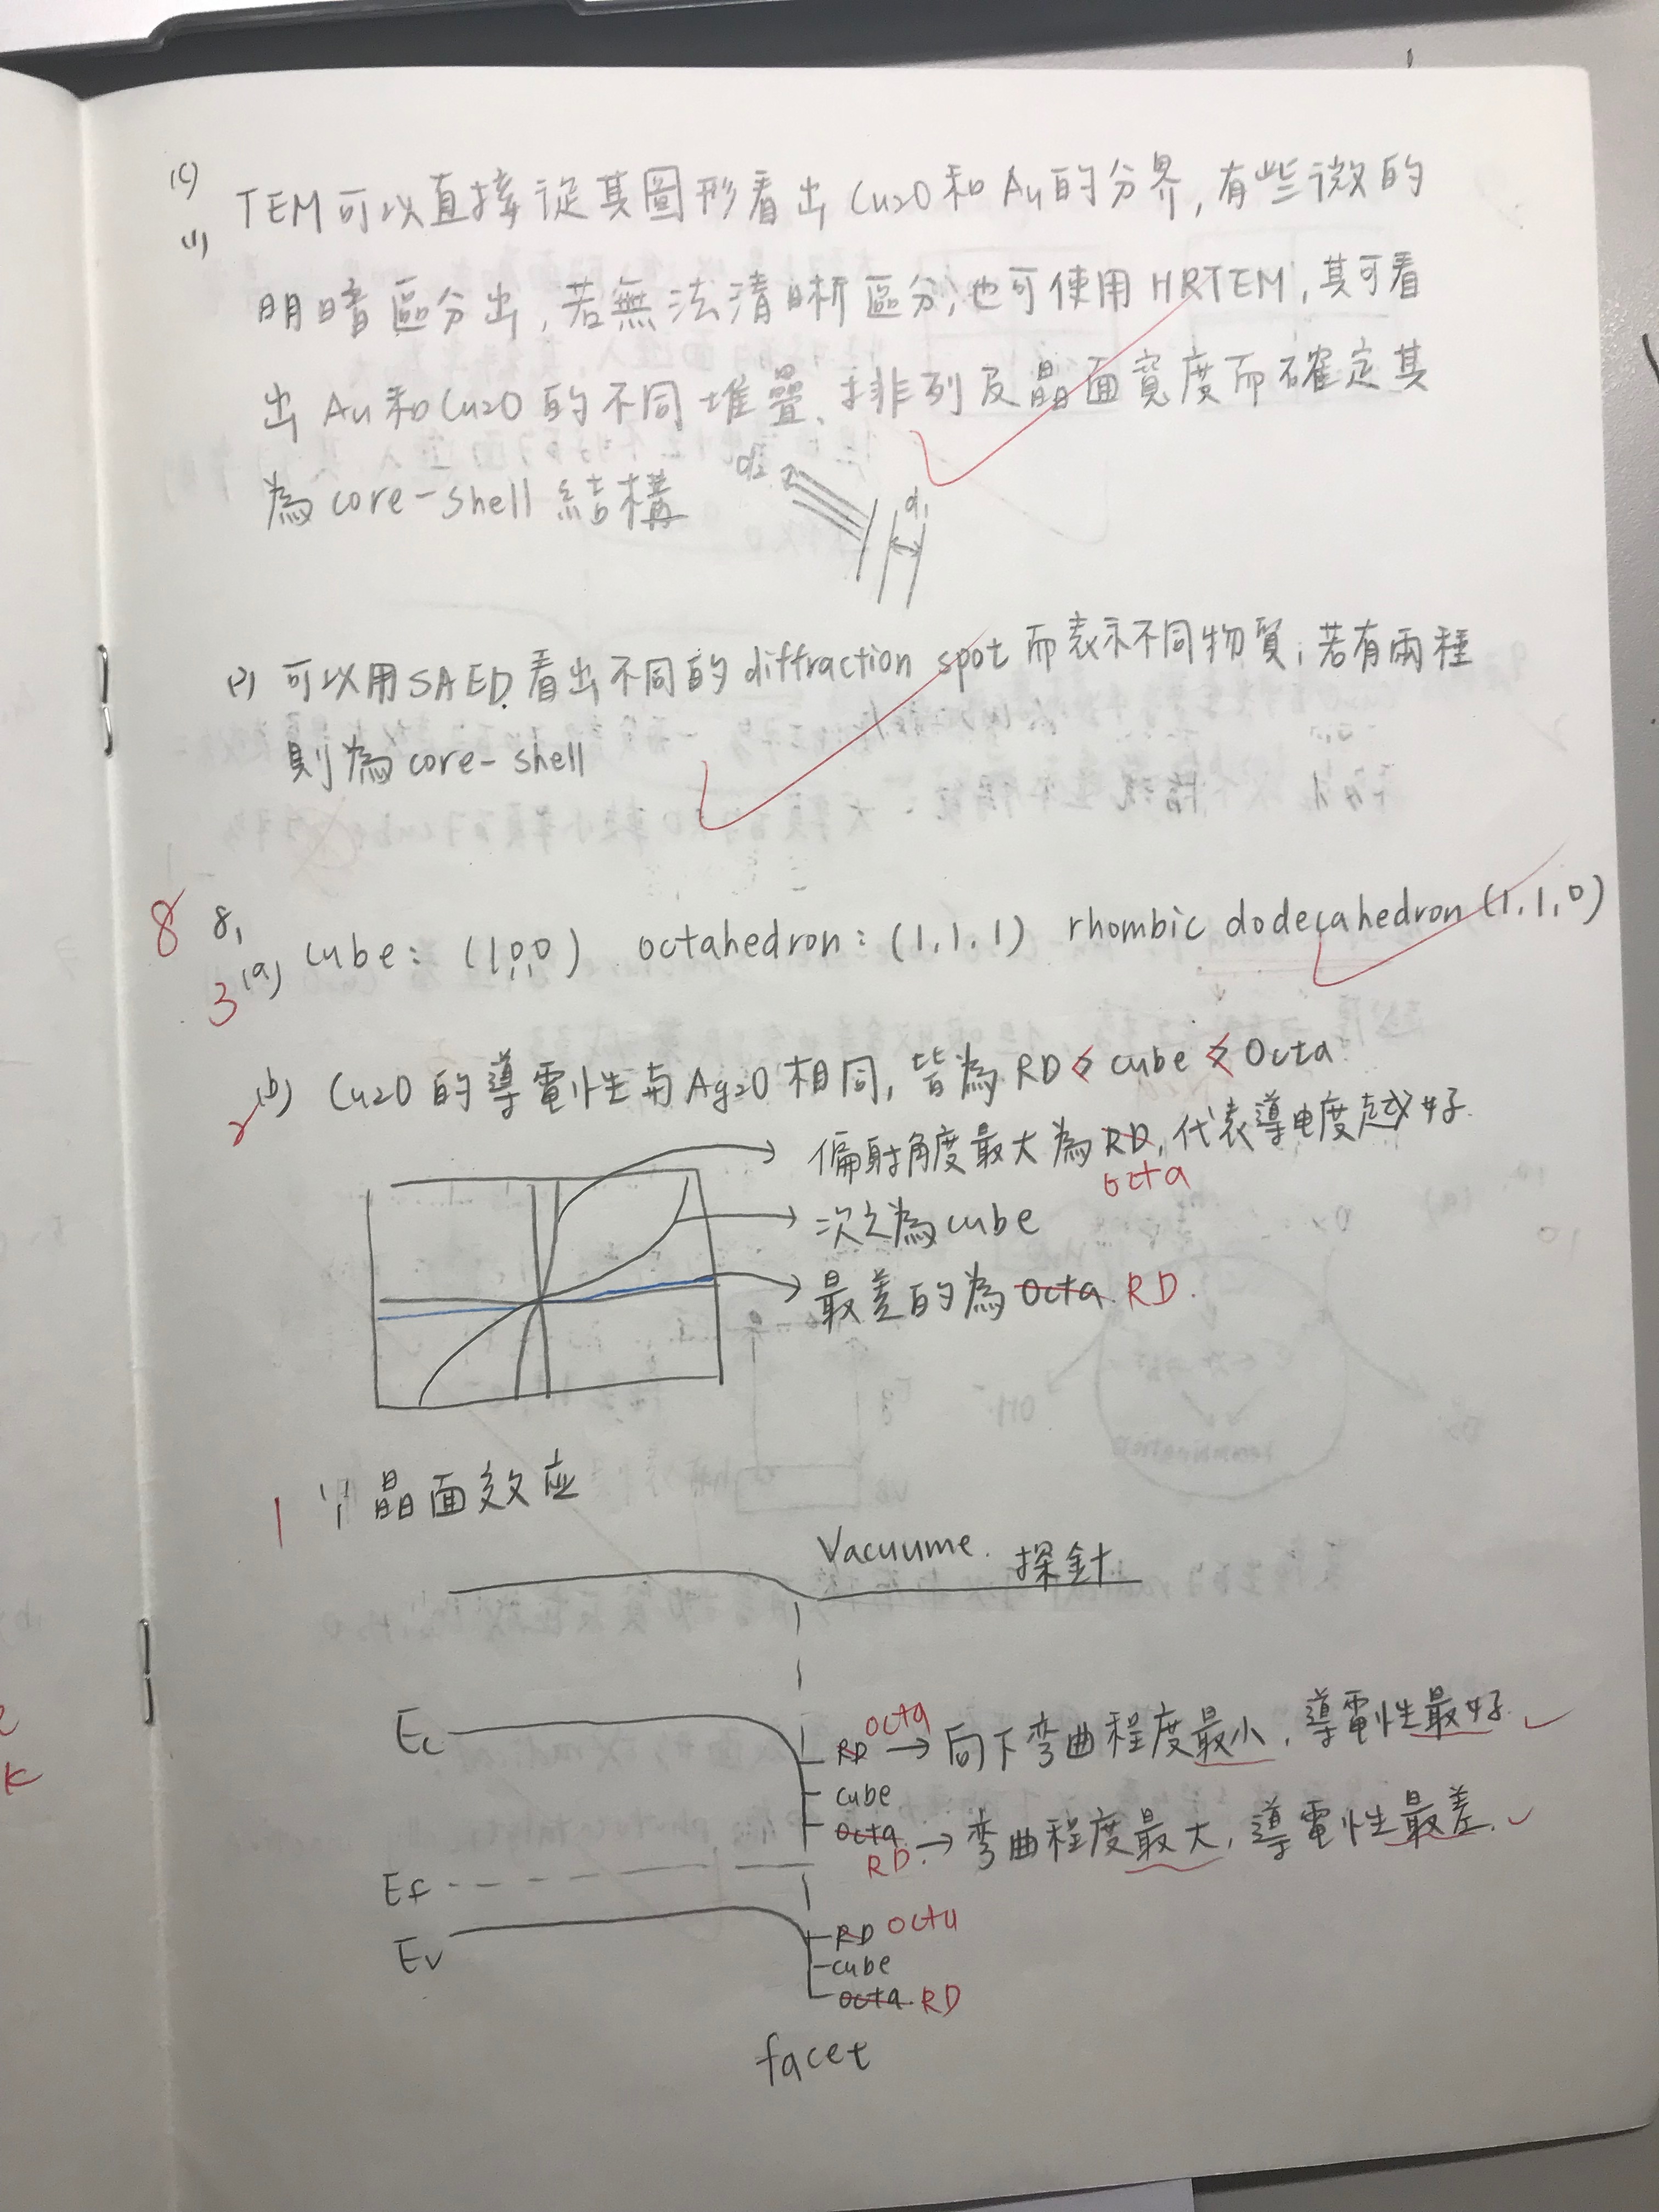 (c)
(1) TEM可以直接從其圖形看出Cu2O和Au的分界,有些微的
明暗區分出,若無法清晰區分,也可使用HRTEM,其可看
出Au和Cu2O的不同堆疊、排列及晶面寬度而確定其
為core-shell結構 d2 d1
(2) 可以用SAED看出不同的diffraction spot而表示不同物質;若有兩種
則為core-shell
8 8,
3 (a) cube: (1,0,0) octahedron: (1,1,1) rhombic dodecahedron (1,1,0)
2 (b) Cu2O的導電性與Ag2O相同,皆為RD < cube < Octa.
偏射角度最大為RD,代表導电度越好.
octa
次之為cube
最差的為Octa RD.
1 晶面效应
Vacuume. 探針
Ec RD octa → 向下弯曲程度最小,導電性最好.
cube
octa → 弯曲程度最大,導電性最差.
RD
Ef
Ev RD octa
cube
octa. RD
facet